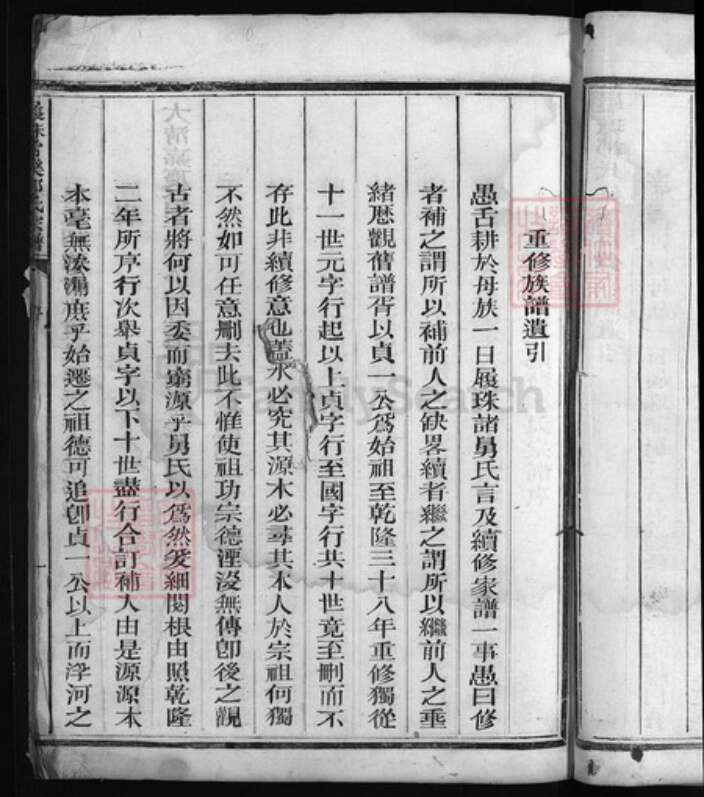 重修族譜遺引
愚舌耕於母族一日履珠諸舅氏言及續修家譜一事愚曰修
者補之謂所以補前人之缺畧續者繼之謂所以繼前人之垂
緒歷觀舊譜胥以貞一公爲始祖至乾隆三十八年重修獨從
十一世元字行起以上貞字行至國字行共十世竟至刪而不
存此非續修意也蓋水必究其源木必尋其本人於宗祖何獨
不然如可任意刪夫此不惟使祖功宗德湮沒無傳卽後之觀
古者將何以因委而窮源乎舅氏以爲然爰細閱根由照乾隆
二年所序行次舉貞字以下十世盡行合訂補入由是源源本
本毫無滲漏庶乎始遷之祖德可追卽貞一公以上而浮河之
大清
FamilySearch